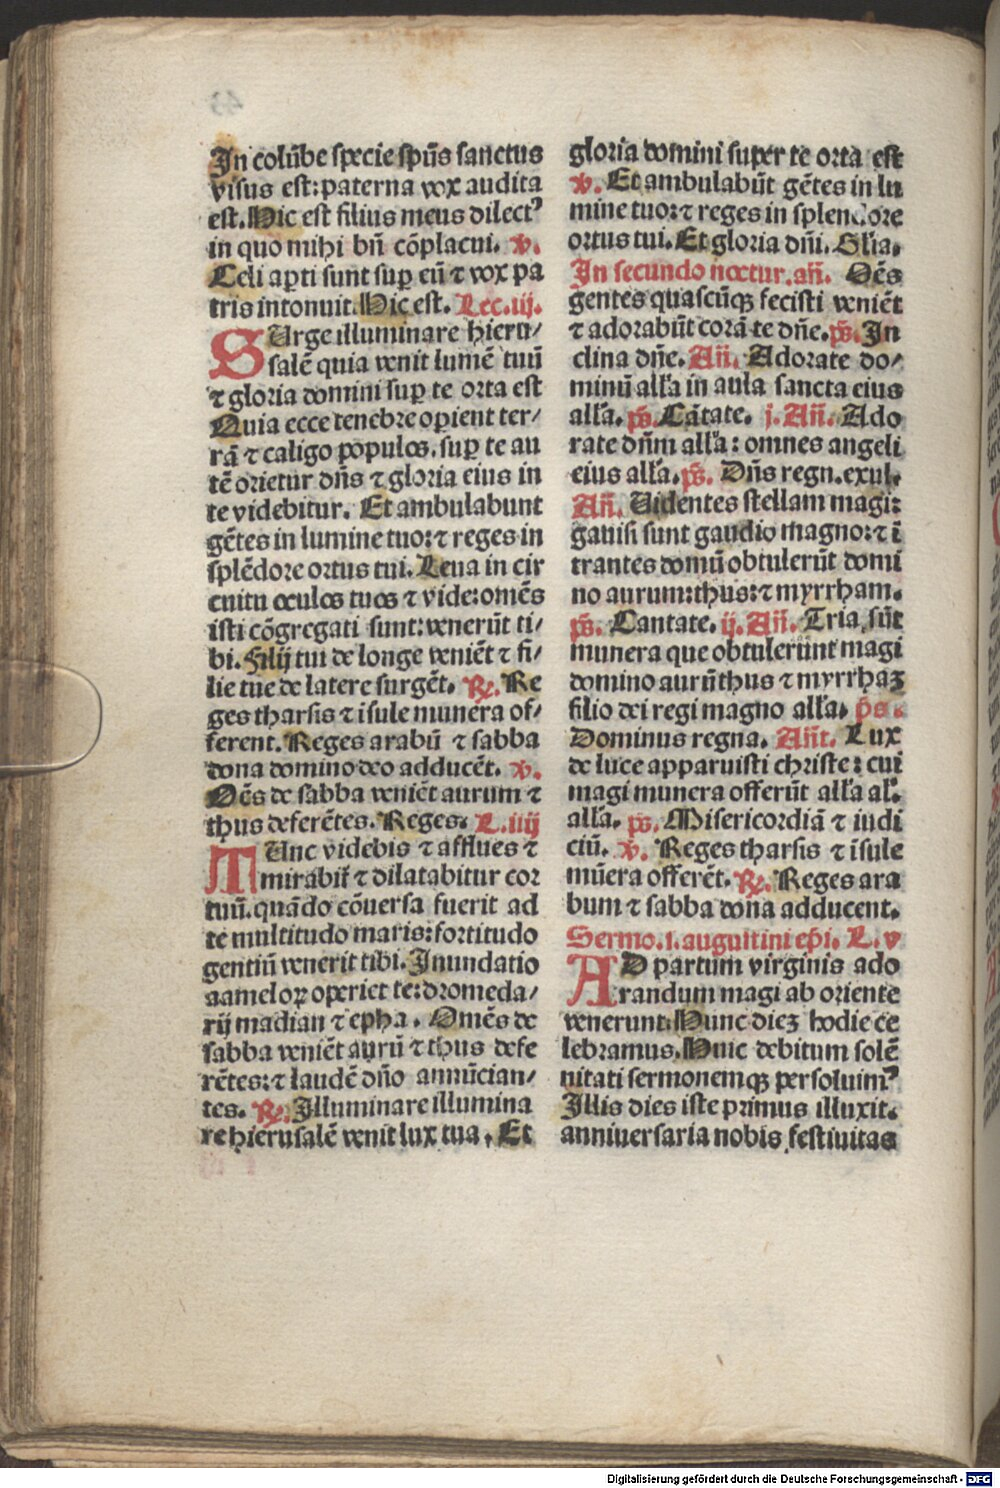 In colūbe specie spūs sanctus
visus est: paterna vox audita
est. Hic est filius meus dilectꝰ
in quo mihi bn̄ cōplacui. v.
Celi apti sunt sup eū ⁊ vox pa
tris intonuit. Hic est. Lec. iij.
SUrge illuminare hieru/
salē quia venit lumē tuū
⁊ gloria domini sup te orta est
Quia ecce tenebre opient ter/
rā ⁊ caligo populos. sup te au
tē orietur dn̄s ⁊ gloria eius in
te videbitur. Et ambulabunt
gētes in lumine tuo: ⁊ reges in
splēdore ortus tui. Leua in cir
cuitu oculos tuos ⁊ vide: omēs
isti cōgregati sunt: venerūt ti/
bi. Filij tui de longe veniēt ⁊ fi/
lie tue de latere surgēt. ℞. Re
ges tharsis ⁊ isule munera of/
ferent. Reges arabū ⁊ sabba
dona domino deo adducēt. v.
Oēs de sabba veniēt aurum ⁊
thus deferētes. Reges. L. iiij
TUnc videbis ⁊ afflues ⁊
mirabit̄ ⁊ dilatabitur cor
tuū. quādo cōuersa fuerit ad
te multitudo maris: fortitudo
gentiū venerit tibi. Inundatio
aameloꝝ operiet te: dromeda/
rij madian ⁊ epha. Omēs de
sabba veniēt aurū ⁊ thus defe
rētes: ⁊ laudē dn̄o annūcian/
tes. ℞. Illuminare illumina
re hierusalē venit lux tua. Et
gloria domini super te orta est
v. Et ambulabūt gētes in lu
mine tuo: ⁊ reges in splendore
ortus tui. Et gloria dn̄i. Glīa.
In secundo noctur. añ. Oēs
gentes quascūqꝫ fecisti veniēt
⁊ adorabūt corā te dn̄e. p̄s. In
clina dn̄e. Añ. Adorate do/
minū all'a in aula sancta eius
all'a. p̄s. Cātate. j. Añ. Ado
rate dn̄m all'a: omnes angeli
eius all'a. p̄s. Dn̄s regn. exul.
Añ. Uidentes stellam magi:
gauisi sunt gaudio magno: ⁊ ī
trantes domū obtulerūt domi
no aurum: thus: ⁊ myrrham.
p̄s. Cantate. ij. Añ. Tria sūt
munera que obtulerūnt magi
domino aurū thus ⁊ myrrhaꝫ
filio dei regi magno all'a. p̄s.
Dominus regna. Añt. Lux
de luce apparuisti christe: cui
magi munera offerūt all'a al'.
all'a. p̄s. Misericordiā ⁊ iudi
ciū. v. Reges tharsis ⁊ īsule
mūera offerēt. ℞. Reges ara
bum ⁊ sabba dona adducent.
Sermo. i. augustini ep̄i. L. v
AD partum virginis ado
randum magi ab oriente
venerunt: Hunc dieꝫ hodie ce
lebramus. Huic debitum solē
nitati sermonemqꝫ persoluimꝰ
Illis dies iste primus illuxit.
anniuersaria nobis festiuitas
Digitalisierung gefördert durch die Deutsche Forschungsgemeinschaft - DFG